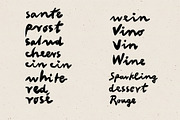 santé
prost
salud
cheers
cin cin
white
red
rosé
wein
Vino
Vin
Wine
Sparkling
dessert
Rouge